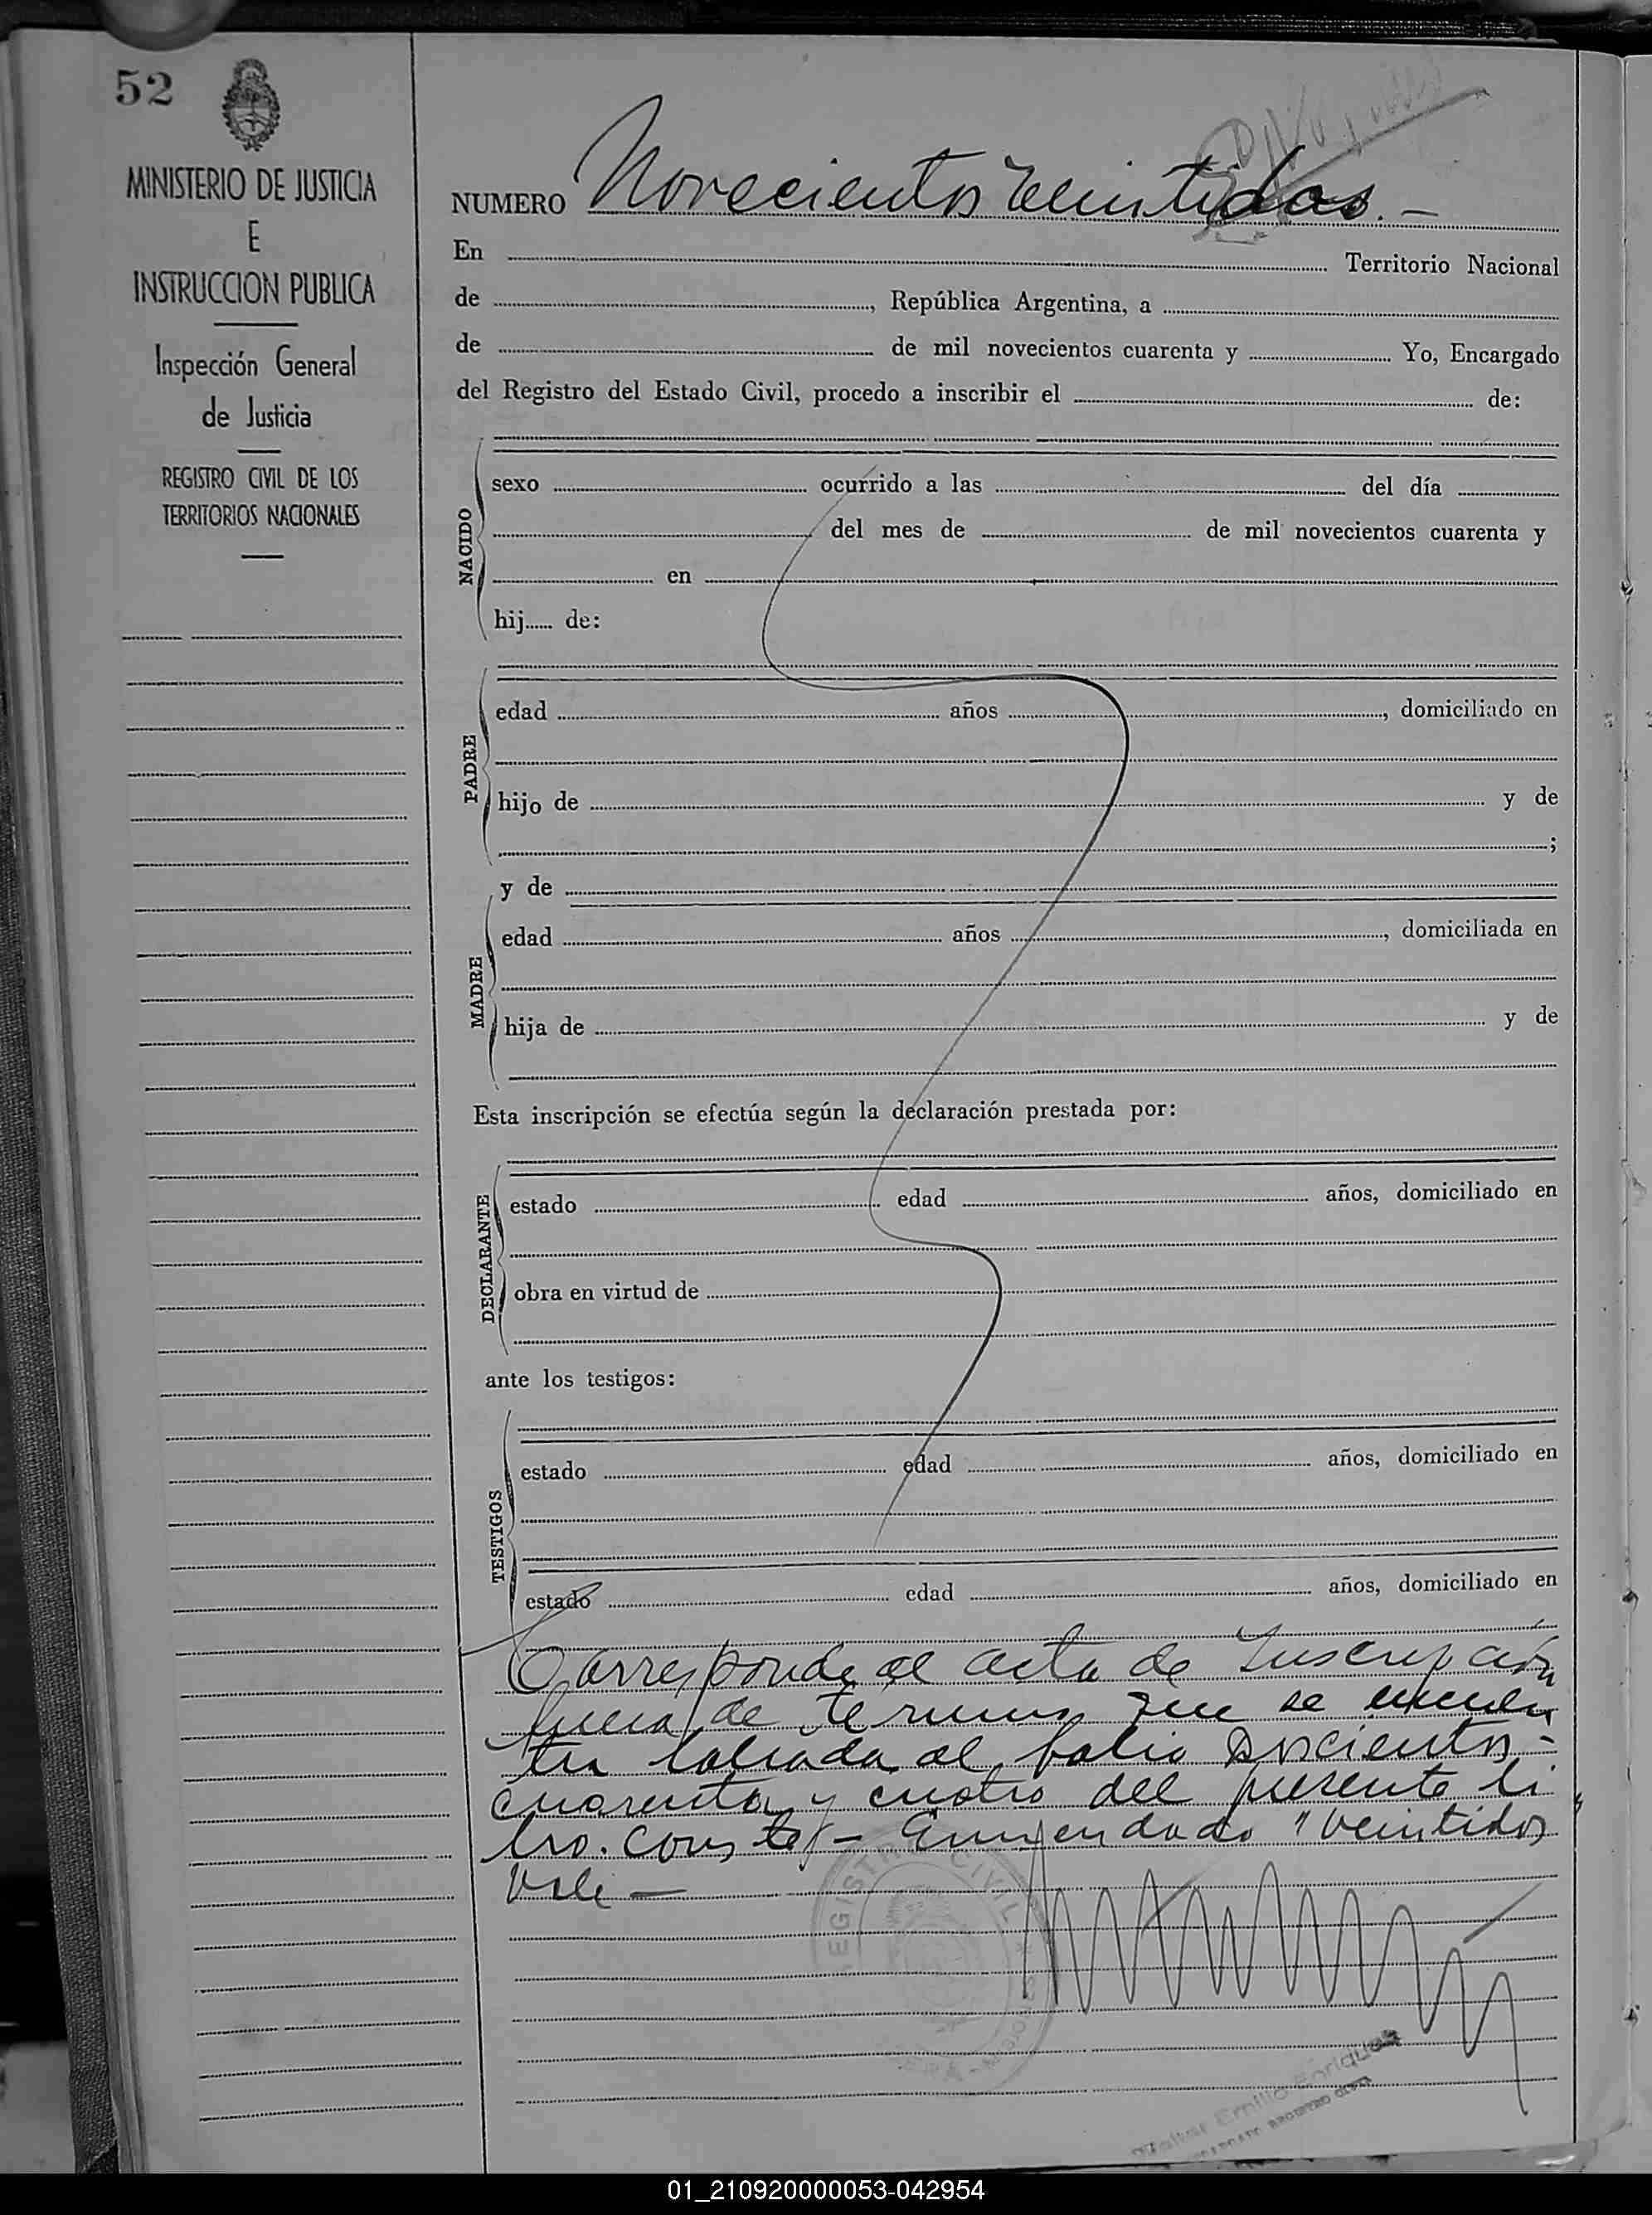 52
MINISTERIO DE JUSTICIA
E
INSTRUCCION PUBLICA
Inspección General
de Justicia
REGISTRO CIVIL DE LOS
TERRITORIOS NACIONALES
NUMERO Novecientos veintidos.-
En Territorio Nacional
de , República Argentina, a
de de mil novecientos cuarenta y Yo, Encargado
del Registro del Estado Civil, procedo a inscribir el de:
NACIDO
sexo ocurrido a las del día
del mes de de mil novecientos cuarenta y
en
hij...... de:
PADRE
edad años , domiciliado en
hijo de y de
;
y de
MADRE
edad años , domiciliada en
hija de y de
Esta inscripción se efectúa según la declaración prestada por:
DECLARANTE
estado edad años, domiciliado en
obra en virtud de
ante los testigos:
TESTIGOS
estado edad años, domiciliado en
estado edad años, domiciliado en
Corresponde al acta de Inscripción
fuera de termino que se encuen
tra labrada al folio Doscientos-
cuarenta y cuatro del presente li
bro. Conste - Enmendado "veintidos
Vale -
REGISTRO CIVIL
Emilio Enriquez
01_210920000053-042954